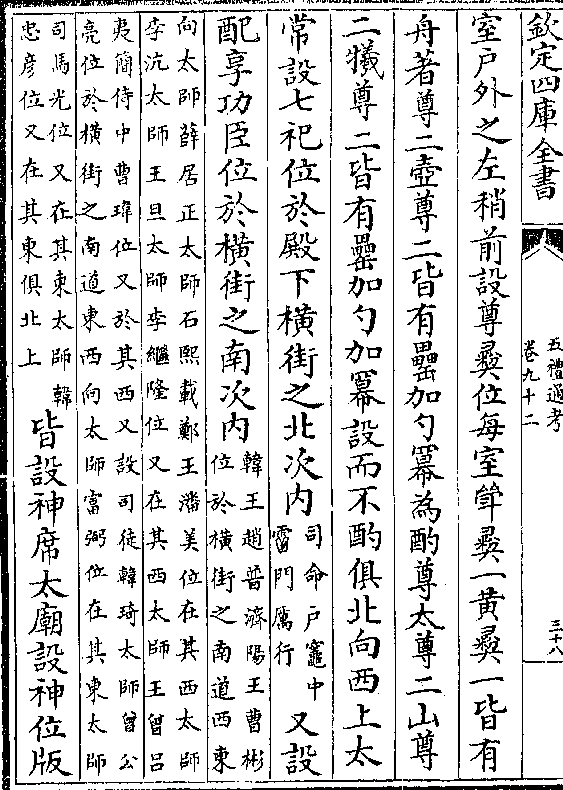 欽定四庫全書
五禮通考
卷九十二
三十八
室戶外之左稍前設尊彞位每室斝彞一黃彞一皆有
舟著尊二壺尊二皆有罍加勺冪為酌尊太尊二山尊
二犧尊二皆有罍加勺加冪設而不酌俱北向西上太
常設七祀位於殿下橫街之北次內
司命户竈中
霤門厲行
又設
配享功臣位於橫街之南次內
韓王趙普濟陽王曹彬
位於橫街之南道西東
向太師薛居正太師石熙載鄭王潘美位在其西太師
李沆太師王旦太師李繼隆位又在其西太師王曾呂
夷簡侍中曹瑋位又於其西又設司徒韓琦太師曾公
亮位於橫街之南道東西向太師富弼位在其東太師
司馬光位又在其東太師韓
忠彦位又在其東俱北上
皆設神席太廟設神位版